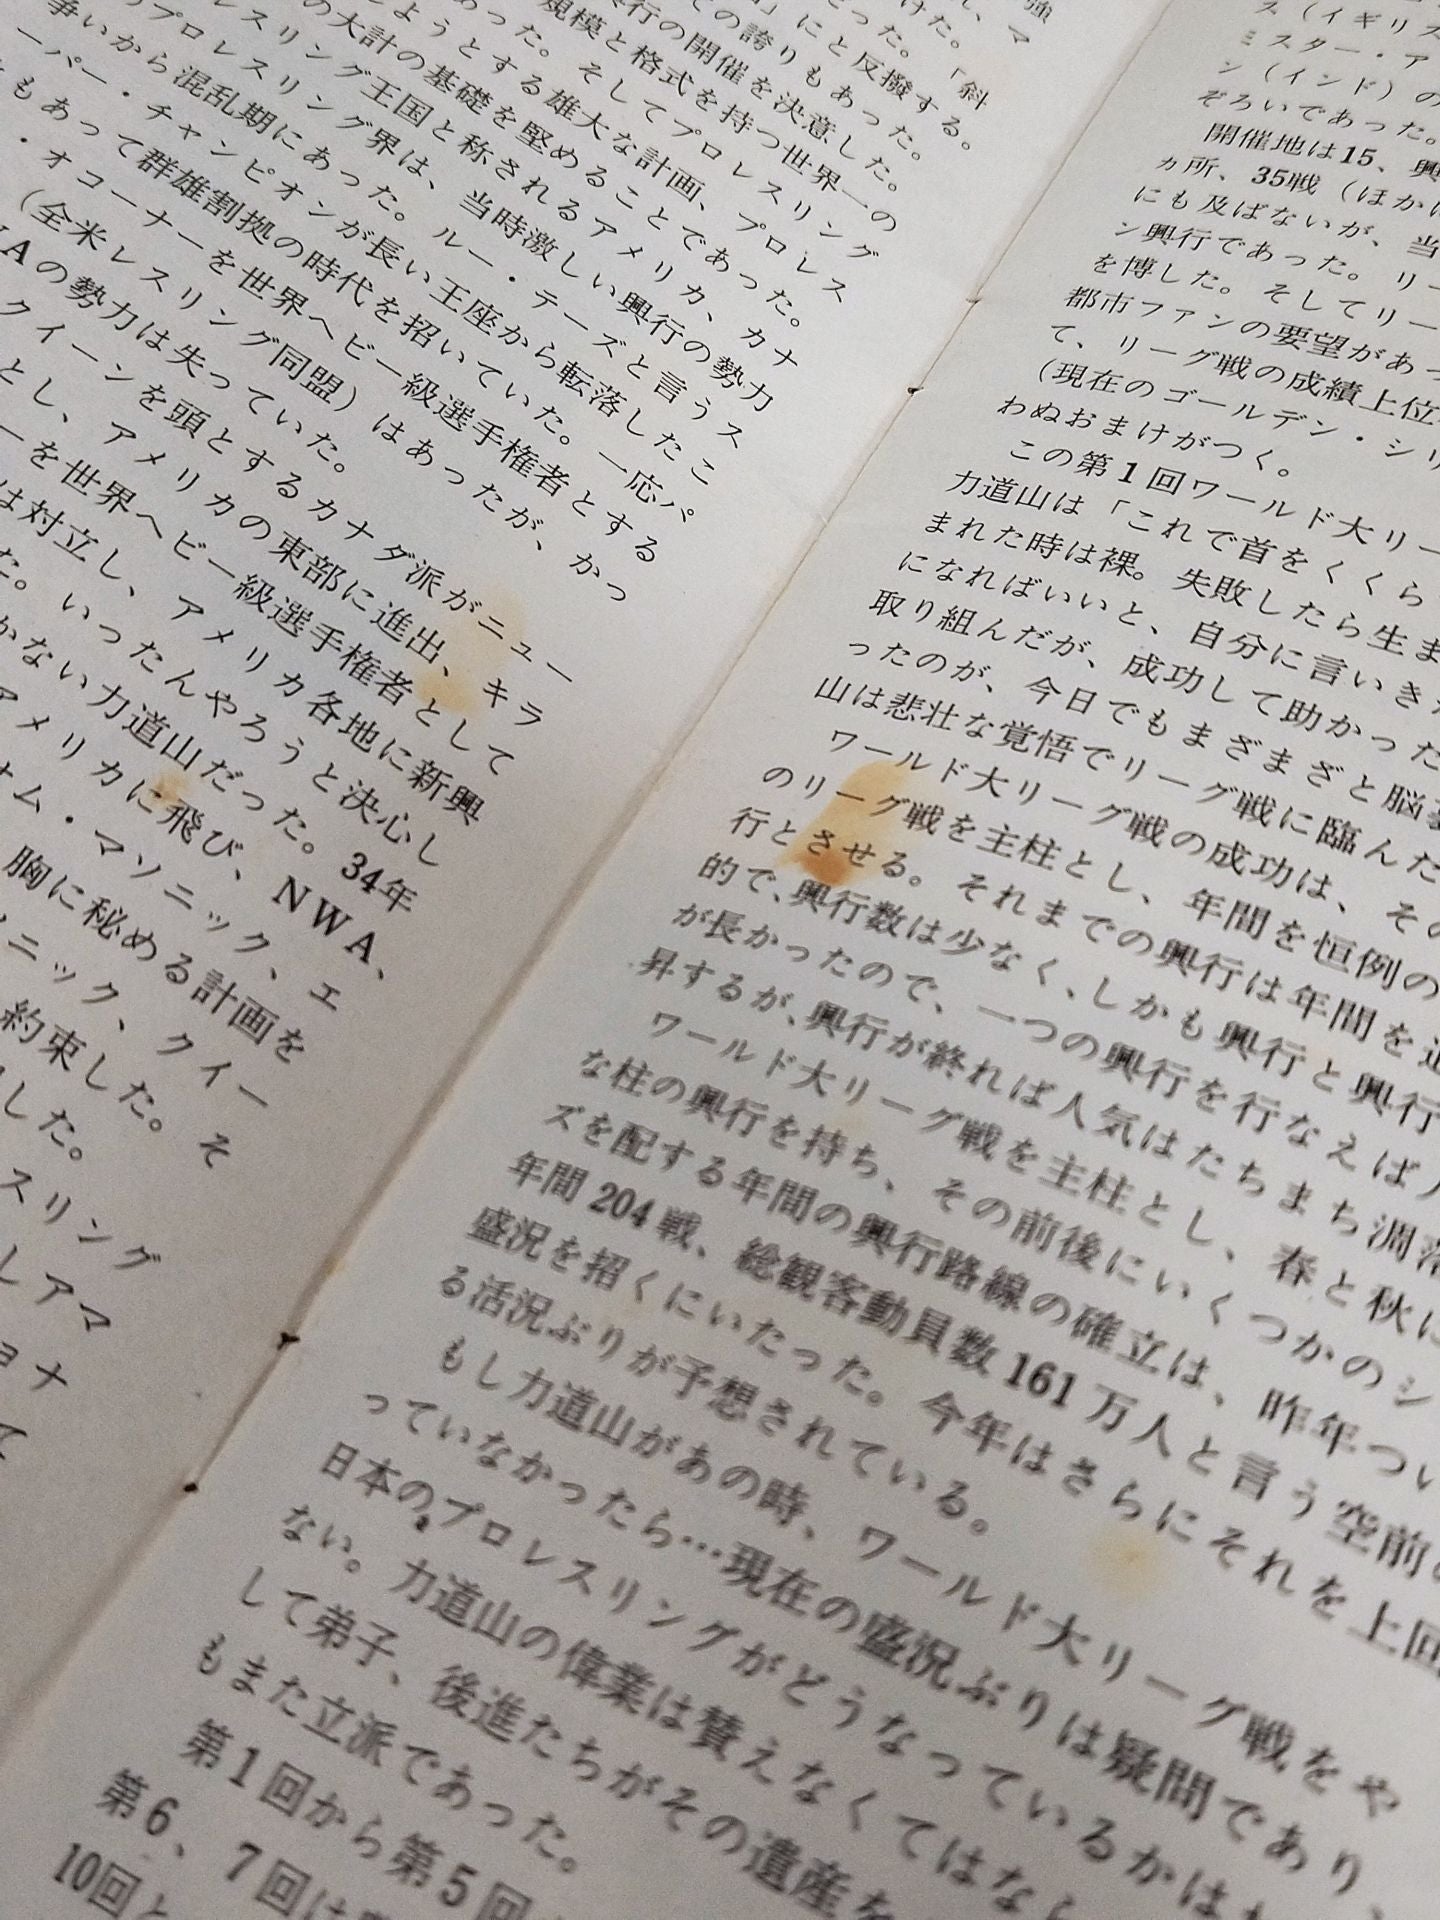 強
、マ
けた。
った。「斜
」にと反撥する。
の誇りもあった。
行の開催を決意した。
規模と格式を持つ世界一の
あった。そしてプロレスリング
しようとする雄大な計画、プロレス
の大計の基礎を堅めることであった。
スリング王国と称されるアメリカ、カナ
プロレスリング界は、当時激しい興行の勢力
争いから混乱期にあった。ルー・テーズと言うス
ーパー・チャンピオンが長い王座から転落したこ
ともあって群雄割拠の時代を招いていた。一応パ
・オコーナーを世界ヘビー級選手権者とする
（全米レスリング同盟）はあったが、かっ
Aの勢力は失っていた。
クイーンを頭とするカナダ派がニュー
とし、アメリカの東部に進出、キラ
ーを世界ヘビー級選手権者として
は対立し、アメリカ各地に新興
た。いったんやろうと決心し
かない力道山だった。34年
アメリカに飛び、NWA、
ナム・マソニック、エ
胸に秘める計画を
ソニック、クイー
約束した。そ
した。
スリング
しアマ
ヨナ
て
（イギリス
ミスター・ア
ン（インド）の
ぞろいであった。
開催地は15、興
ヵ所、35戦（ほかに
にも及ばないが、当
ン興行であった。リー
を博した。そしてリー
都市ファンの要望があっ
て、リーグ戦の成績上位
（現在のゴールデン・シリ
わぬおまけがつく。
この第1回ワールド大リー
力道山は「これで首をくくら
まれた時は裸。失敗したら生ま
になればいいと、自分に言いきか
取り組んだが、成功して助かった
ったのが、今日でもまざまざと脳裏
山は悲壮な覚悟でリーグ戦に臨んだ
ワールド大リーグ戦の成功は、その
のリーグ戦を主柱とし、年間を恒例の
行とさせる。それまでの興行は年間を
的で、興行数は少なく、しかも興行と興行
が長かったので、一つの興行を行なえば人
昇するが、興行が終れば人気はたちまち凋落
ワールド大リーグ戦を主柱とし、春と秋に
な柱の興行を持ち、その前後にいくつかのシ
ズを配する年間の興行路線の確立は、昨年つい
年間204戦、総観客動員数161万人と言う空前の
盛況を招くにいたった。今年はさらにそれを上回
る活況ぶりが予想されている。
もし力道山があの時、ワールド大リーグ戦をや
っていなかったら…現在の盛況ぶりは疑問であり、
日本のプロレスリングがどうなっているかはわ
ない。力道山の偉業は賛えなくてはなら
して弟子、後進たちがその遺産を
もまた立派であった。
第1回から第5回
第6、7回は
10回と